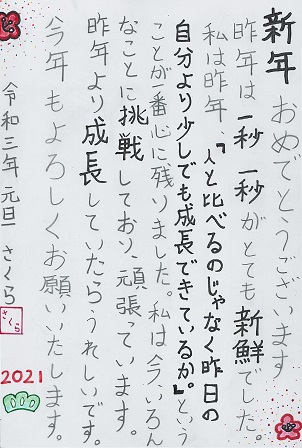 新年 おめでとうございます
昨年は一秒一秒がとても新鮮でした
私は昨年、『人と比べるのじゃなく昨日の
自分より少しでも成長できているか。』という
ことが一番心に残りました。私は今、いろん
なことに挑戦しており、頑張っています。
昨年より成長していたら、うれしいです。
今年もよろしくお願いいたします。
令和三年 元旦 さくら
さくら
2021